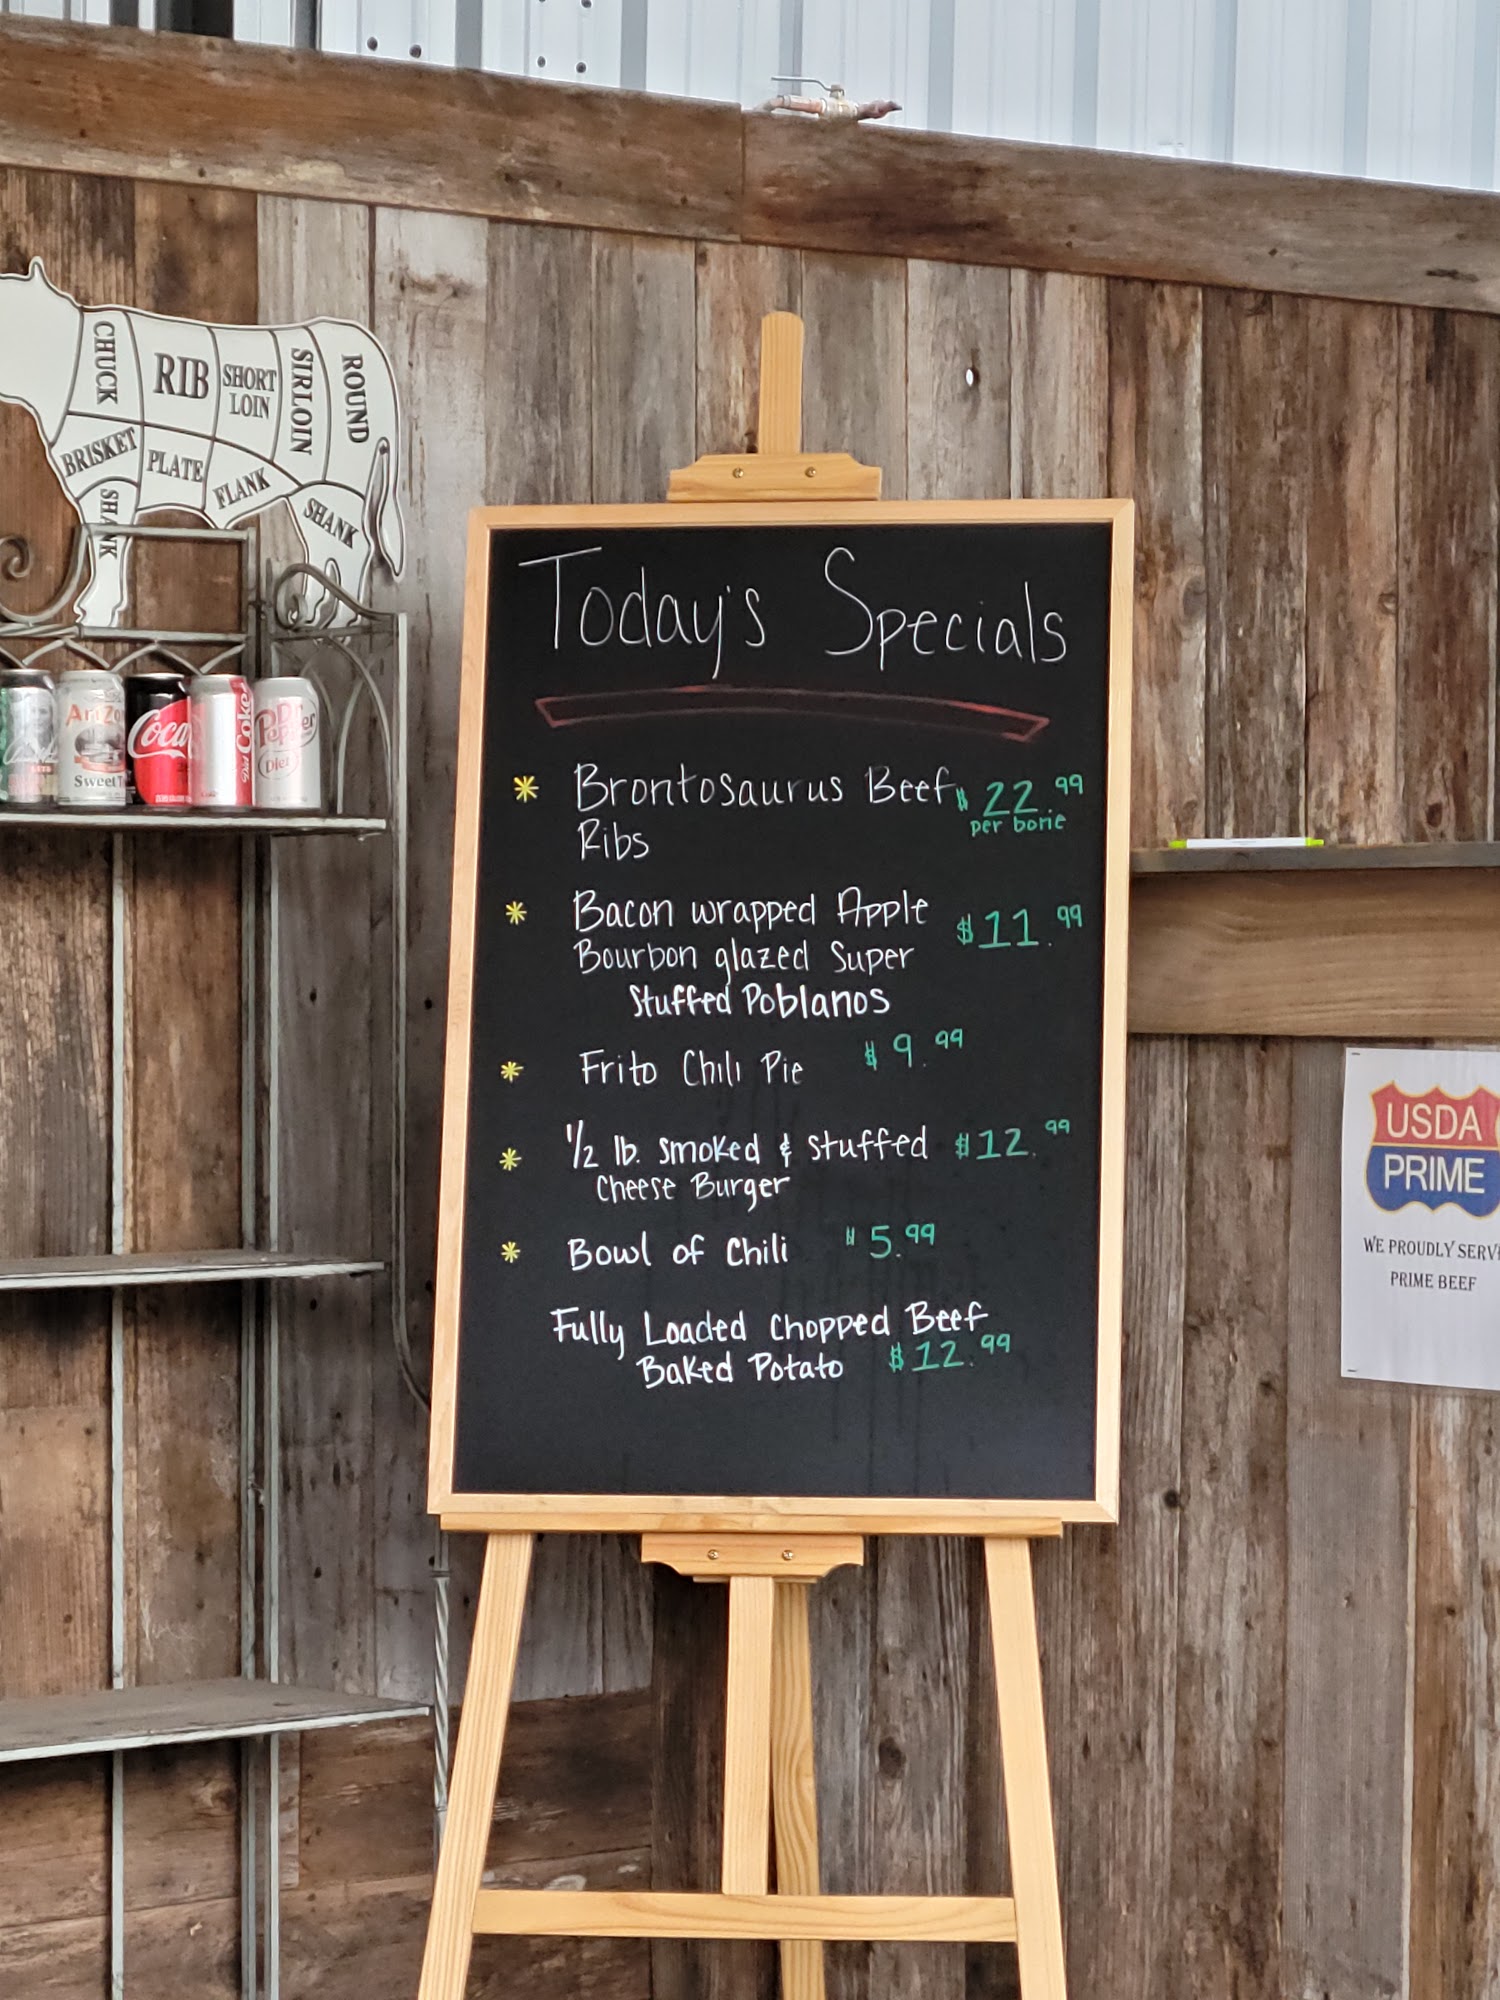 CHUCK
RIB
SHORT
LOIN
SIRLOIN
ROUND
BRISKET
PLATE
FLANK
SHANK
SHANK
Ariz
Sweet T
Coca
Diet Coke
Dr
Pepper
Diet
Today's Specials
* Brontosaurus Beef $22.99
Ribs per bone
* Bacon wrapped Apple $11.99
Bourbon glazed Super
Stuffed Poblanos
* Frito Chili Pie $9.99
* 1/2 lb. smoked & stuffed $12.99
Cheese Burger
* Bowl of Chili $5.99
Fully Loaded Chopped Beef
Baked Potato $12.99
USDA
PRIME
WE PROUDLY SERV
PRIME BEEF